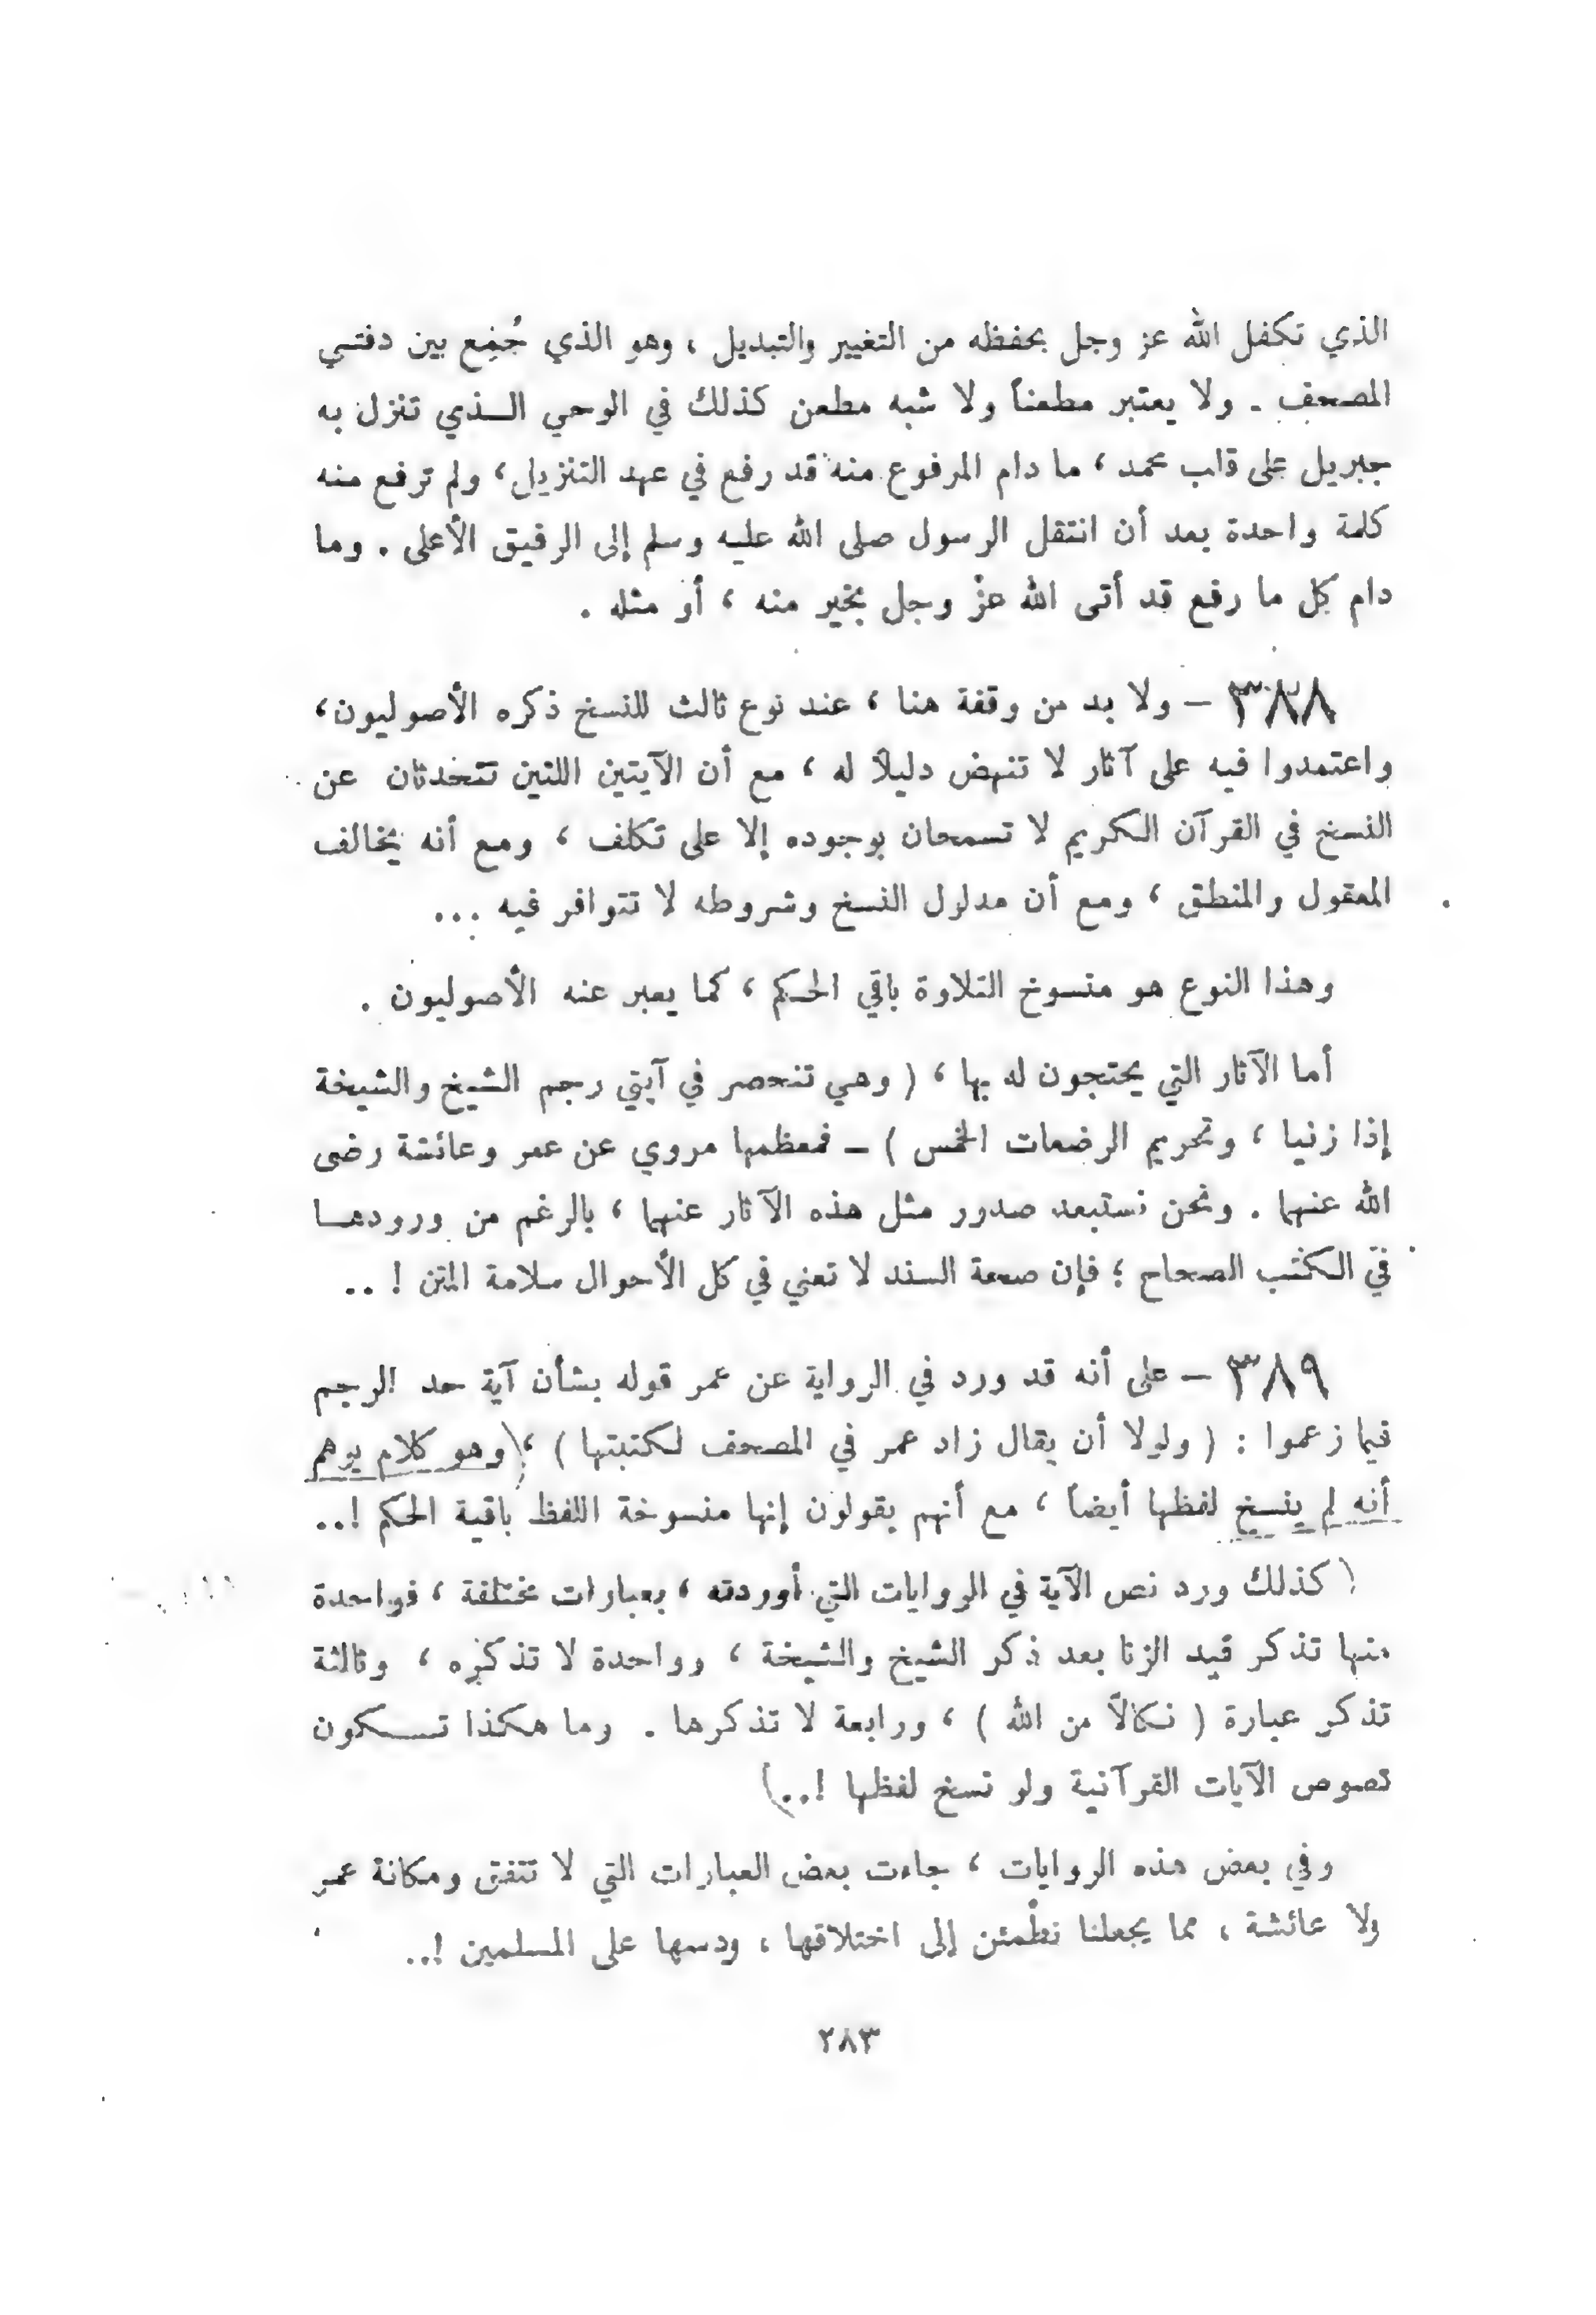 الذي تكفل الله عز وجل بحفظه من التغيير والتبديل ، وهو الذي جُمِع بين دفتي
المصحف . ولا يعتبر مطعناً ولا شبه مطعن كذلك في الوحي الـذي تنزل به
جبريل على قلب محمد ، ما دام المرفوع منه قد رفع في عهد التنزيل ، ولم ترفع منه
كلمة واحدة بعد أن انتقل الرسول صلى الله عليه وسلم إلى الرفيق الأعلى . وما
دام كل ما رفع قد أتى الله عزَّ وجل بخير منه ، أو مثله .
٣٨٨ – ولا بد من وقفة هنا ، عند نوع ثالث للنسخ ذكره الأصوليون ،
واعتمدوا فيه على آثار لا تنهض دليلاً له ، مع أن الآيتين اللتين تتحدثان عن
النسخ في القرآن الكريم لا تسمحان بوجوده إلا على تكلف ، ومع أنه يخالف
المعقول والمنطق ، ومع أن مدلول النسخ وشروطه لا تتوافر فيه ...
وهذا النوع هو منسوخ التلاوة باقي الحكم ، كما يعبر عنه الأصوليون .
أما الآثار التي يحتجون له بها ، ( وهي تنحصر في آيتي رجم الشيخ والشيخة
إذا زنيا ، وتحريم الرضعات الخمس ) – فمعظمها مروي عن عمر وعائشة رضى
الله عنهما . ونحن نستبعد صدور مثل هذه الآثار عنهما ، بالرغم من ورودهـا
في الكتب الصحاح ؛ فإن صحة السند لا تعني في كل الأحوال سلامة المتن ! ..
٣٨٩ – على أنه قد ورد في الرواية عن عمر قوله بشأن آية حد الرجم
فيما زعموا : ( ولولا أن يقال زاد عمر في المصحف لكتبتها ) ، (وهو كلام يوهم
أنه لم ينسخ لفظها أيضاً ، مع أنهم يقولون إنها منسوخة اللفظ باقية الحكم !..
( كذلك ورد نص الآية في الروايات التي أوردته ، بعبارات مختلفة ، فواحدة
منها تذكر قيد الزنا بعد ذكر الشيخ والشيخة ، وواحدة لا تذكره ، وثالثة
تذكر عبارة ( نكالاً من الله ) ، ورابعة لا تذكرها . وما هكذا تـكون
نصوص الآيات القرآنية ولو نسخ لفظها !..)
وفي بعض هذه الروايات ، جاءت بعض العبارات التي لا تتفق ومكانة عمر
ولا عائشة ، مما يجعلنا نطمئن إلى اختلاقها ، ودسها على المسلمين !..
٢٨٣